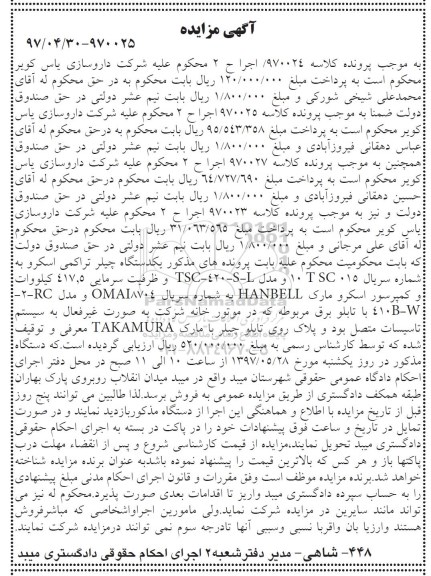 آگهی مزایده
۹۷/۰۴/۳۰-۹۷۰۰۲۵
به موجب پرونده کلاسه ۹۷۰۰۲۴/ اجرا ح ۲ محکوم علیه شرکت داروسازی یاس کویر
محکوم است به پرداخت مبلغ ۱۲۰/۰۰۰/۰۰۰ ریال بابت محکوم به در حق محکوم له آقای
محمدعلی شیخی شورکی و مبلغ ۱/۸۰۰/۰۰۰ ریال بابت نیم عشر دولتی در حق صندوق
دولت ضمنا به موجب پرونده کلاسه ۹۷۰۰۲۵ اجرا ح ۲ محکوم علیه شرکت داروسازی یاس
کویر محکوم است به پرداخت مبلغ ۹۵/۵۴۳/۳۵۸ ریال بابت محکوم به درحق محکوم له آقای
عباس دهقانی فیروزآبادی و مبلغ ۱/۸۰۰/۰۰۰ ریال بابت نیم عشر دولتی در حق صندوق
همچنین به موجب پرونده کلاسه ۹۷۰۰۲۷ اجرا ح ۲ محکوم علیه شرکت داروسازی یاس
کویر محکوم است به پرداخت مبلغ ۶۴/۷۲۷/۶۹۰ ریال بابت محکوم درحق محکوم له آقای
حسین دهقانی فیروزآبادی و مبلغ ۱/۸۰۰/۰۰۰ ریال بابت نیم عشر دولتی در حق صندوق
دولت و نیز به موجب پرونده کلاسه ۹۷۰۰۲۳ اجرا ح ۲ محکوم علیه شرکت داروسازی
یاس کویر محکوم است به پرداخت مبلغ ۳۱/۰۶۳/۵۶۵ ریال بابت محکوم درحق محکوم
له آقای علی مرجانی و مبلغ ۱/۸۰۰/۰۰۰ ریال بابت نیم عشر دولتی در حق صندوق دولت
که بابت محکومیت محکوم علیه بابت پرونده های مذکور یکدستگاه چیلر تراکمی اسکرو به
شماره سریال T SC ۰۱۵ ۱۰ و مدل TSC-۴۲۰-S-L و ظرفیت سرمایی ۴۱۷,۵ کیلووات
و کمپرسور اسکرو مارک HANBELL به شماره سریال OMAI۸۷۰۴ و مدل RC-۲-
۴۱۰B-W با تابلو برق مربوطه که در موتور خانه شرکت به صورت غیرفعال به سیستم
تاسیسات متصل بود و پلاک روی تابلو چیلر با مارک TAKAMURA معرفی و توقیف
شده که توسط کارشناس رسمی به مبلغ ۵۲۰/۰۰۰/۰۰۰ ریال ارزیابی گردیده است.که دستگاه
مذکور در روز یکشنبه مورخ ۱۳۹۷/۰۵/۲۸ از ساعت ۱۰ الی ۱۱ صبح در محل دفتر اجرای
احکام دادگاه عمومی حقوقی شهرستان میبد واقع در میبد میدان انقلاب روبروی پارک بهاران
طبقه همکف دادگستری از طریق مزایده عمومی به فروش برسد.لذا طالبین می توانند پنج روز
قبل از تاریخ مزایده با اطلاع و هماهنگی این اجرا از دستگاه مذکوربازدید نمایند و در صورت
تمایل در تاریخ و ساعت فوق پیشنهادات خود را در پاکت در بسته به اجرای احکام حقوقی
دادگستری میبد تحویل نمایند،مزایده از قیمت کارشناسی شروع و پس از انقضاء مهلت درب
پاکتها باز و هر کس که بالاترین قیمت را پیشنهاد نموده باشدبه عنوان برنده مزایده شناخته
خواهد شد.برنده مزایده موظف است وفق مقررات و قانون اجرای احکام مدنی مبلغ پیشنهادی
را به حساب سپرده دادگستری میبد واریز تا اقدامات بعدی صورت پذیرد.محکوم له نیز می
تواند مانند سایرین در مزایده شرکت نماید.ولی مامورین اجراواشخاصی که مباشرفروش
هستند وارزیا بان واقربا نسبی وسببی آنها تادرجه سوم نمی توانند درمزایده شرکت نمایند.
۴۴۸- شاهی- مدیر دفترشعبه۲ اجرای احکام حقوقی دادگستری میبد